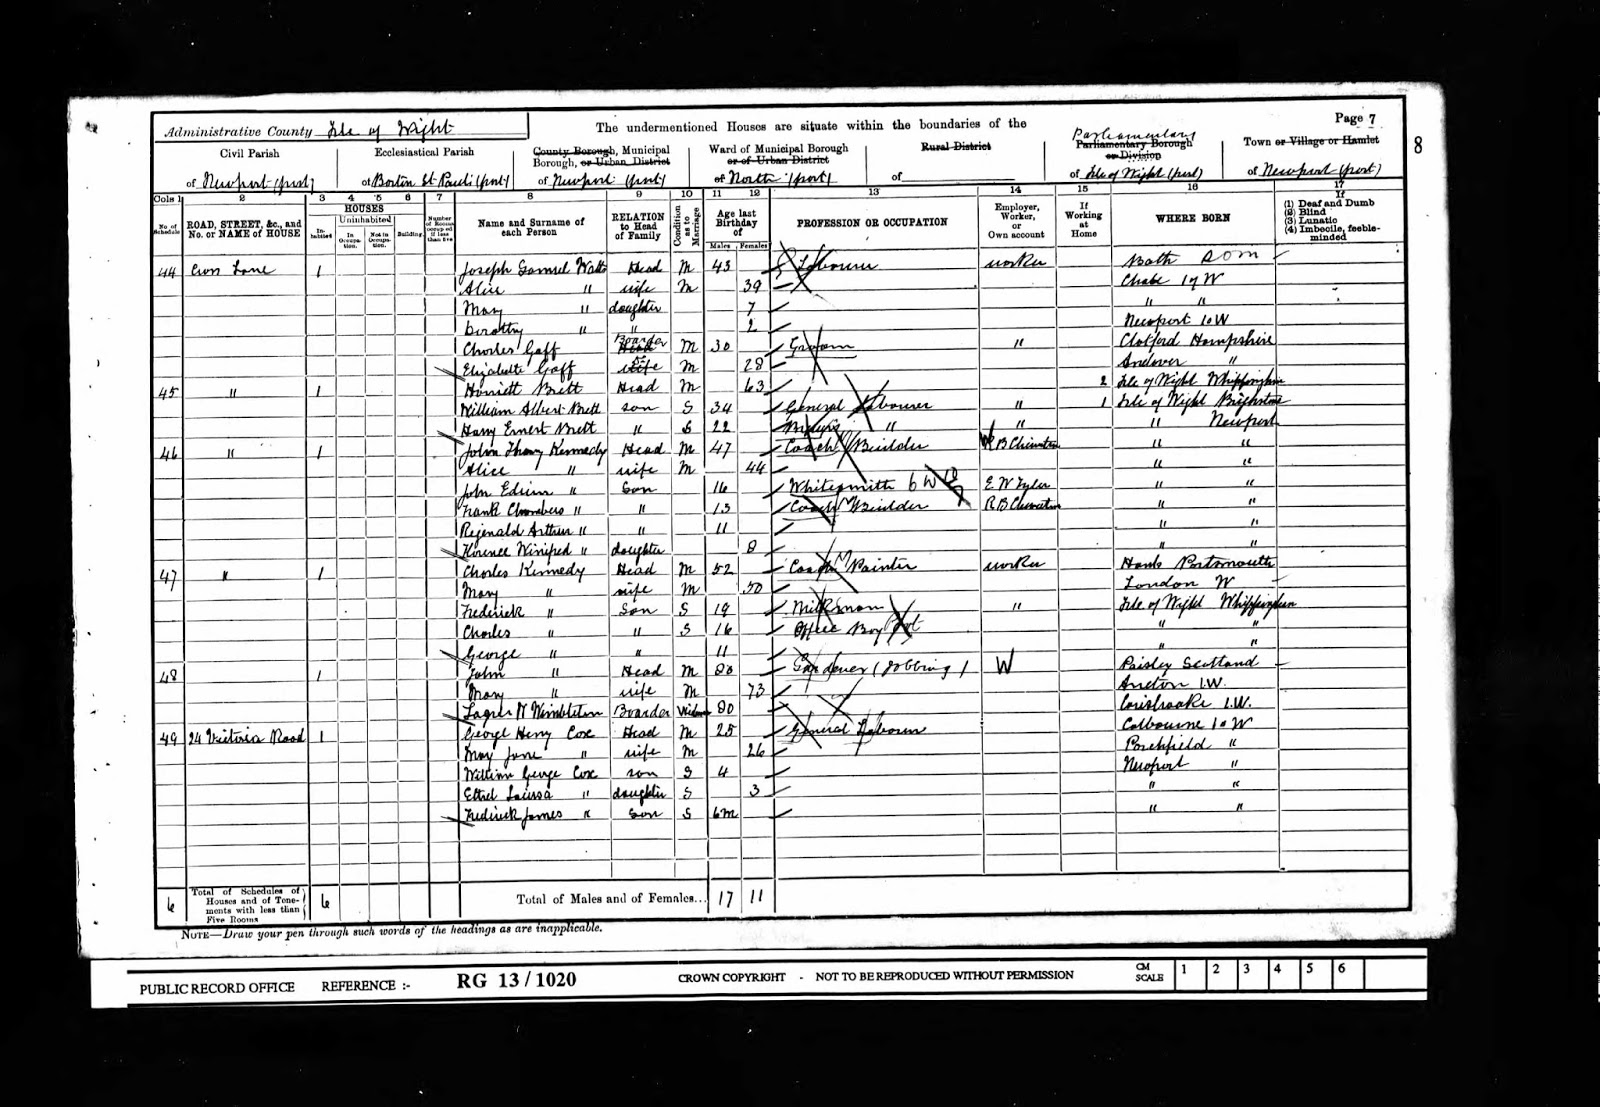 Administrative County Isle of Wight
The undermentioned Houses are situate within the boundaries of the
Page 7
8
Civil Parish
of Newport (part)
Ecclesiastical Parish
of Barton St Pauls (part)
County Borough, Municipal Borough, or Urban District
of Newport (part)
Ward of Municipal Borough or of Urban District
of North (part)
Rural District
of
Parliamentary
Parliamentary Borough or Division
of Isle of Wight (part)
Town or Village or Hamlet
of Newport (part)
Cols 1 2 3 4 5 6 7 8 9 10 11 12 13 14 15 16 17
No. of Schedule
ROAD, STREET, &c., and No. or NAME of HOUSE
HOUSES
Inhabited
Uninhabited
In Occupation.
Not in Occupation.
Building
Number of Rooms occupied if less than five
Name and Surname of each Person
RELATION to Head of Family
Condition as to Marriage
Age last Birthday of
Males Females
PROFESSION OR OCCUPATION
Employer, Worker, or Own account
If Working at Home
WHERE BORN
If (1) Deaf and Dumb (2) Blind (3) Lunatic (4) Imbecile, feeble-minded
44 Lane 1 Joseph Samuel Watts Head M 43 Labourer worker Bath SOM
Alice " wife M 39 Chale I of W
Mary " daughter 7 " "
Dorothy " " 2 Newport I o W
Charles Goff Boarder Head M 30 Groom " Clatford Hampshire
Elizabeth Goff wife M 28 Andover "
45 " 1 Harriett Brett Head M 63 2 Isle of Wight Whippingham
William Albert Brett son S 34 General Labourer " 1 Isle of Wight Brighstone
Harry Ernest Brett " S 22 " " " Newport
46 " 1 John Kennedy Head M 47 Coach Builder " "
Alice " wife M 44 " "
John Edwin " Son 16 Whitesmith E W Tyler " "
Frank Chambers " " 13 Coach Builder " "
Reginald Arthur " " 11 " "
Florence Winifred " daughter 8 " "
47 " 1 Charles Kennedy Head M 52 Coach Painter worker Hants Portsmouth
Mary " wife M 50 London W
Frederick " Son S 19 Milkman " Isle of Wight Whippingham
Charles " " S 16 Office Boy " "
George " " 11 " "
48 1 John " Head M 80 Gardener (Jobbing) W Paisley Scotland
Mary " wife M 73 Arreton I.W.
Boarder Widower 80 Carisbrooke I.W.
49 24 Victoria Road 1 George Henry Cox Head M 25 General Labourer Calbourne I o W
May Jane " wife M 26 Porchfield "
William George Cox son S 4 Newport "
Ethel Louisa " daughter S 3 " "
Frederick James " Son S 6m " "
6 Total of Schedules of Houses and of Tenements with less than Five Rooms 6 Total of Males and of Females... 17 11
NOTE—Draw your pen through such words of the headings as are inapplicable.
PUBLIC RECORD OFFICE REFERENCE :- RG 13 / 1020 CROWN COPYRIGHT - NOT TO BE REPRODUCED WITHOUT PERMISSION CM SCALE 1 2 3 4 5 6